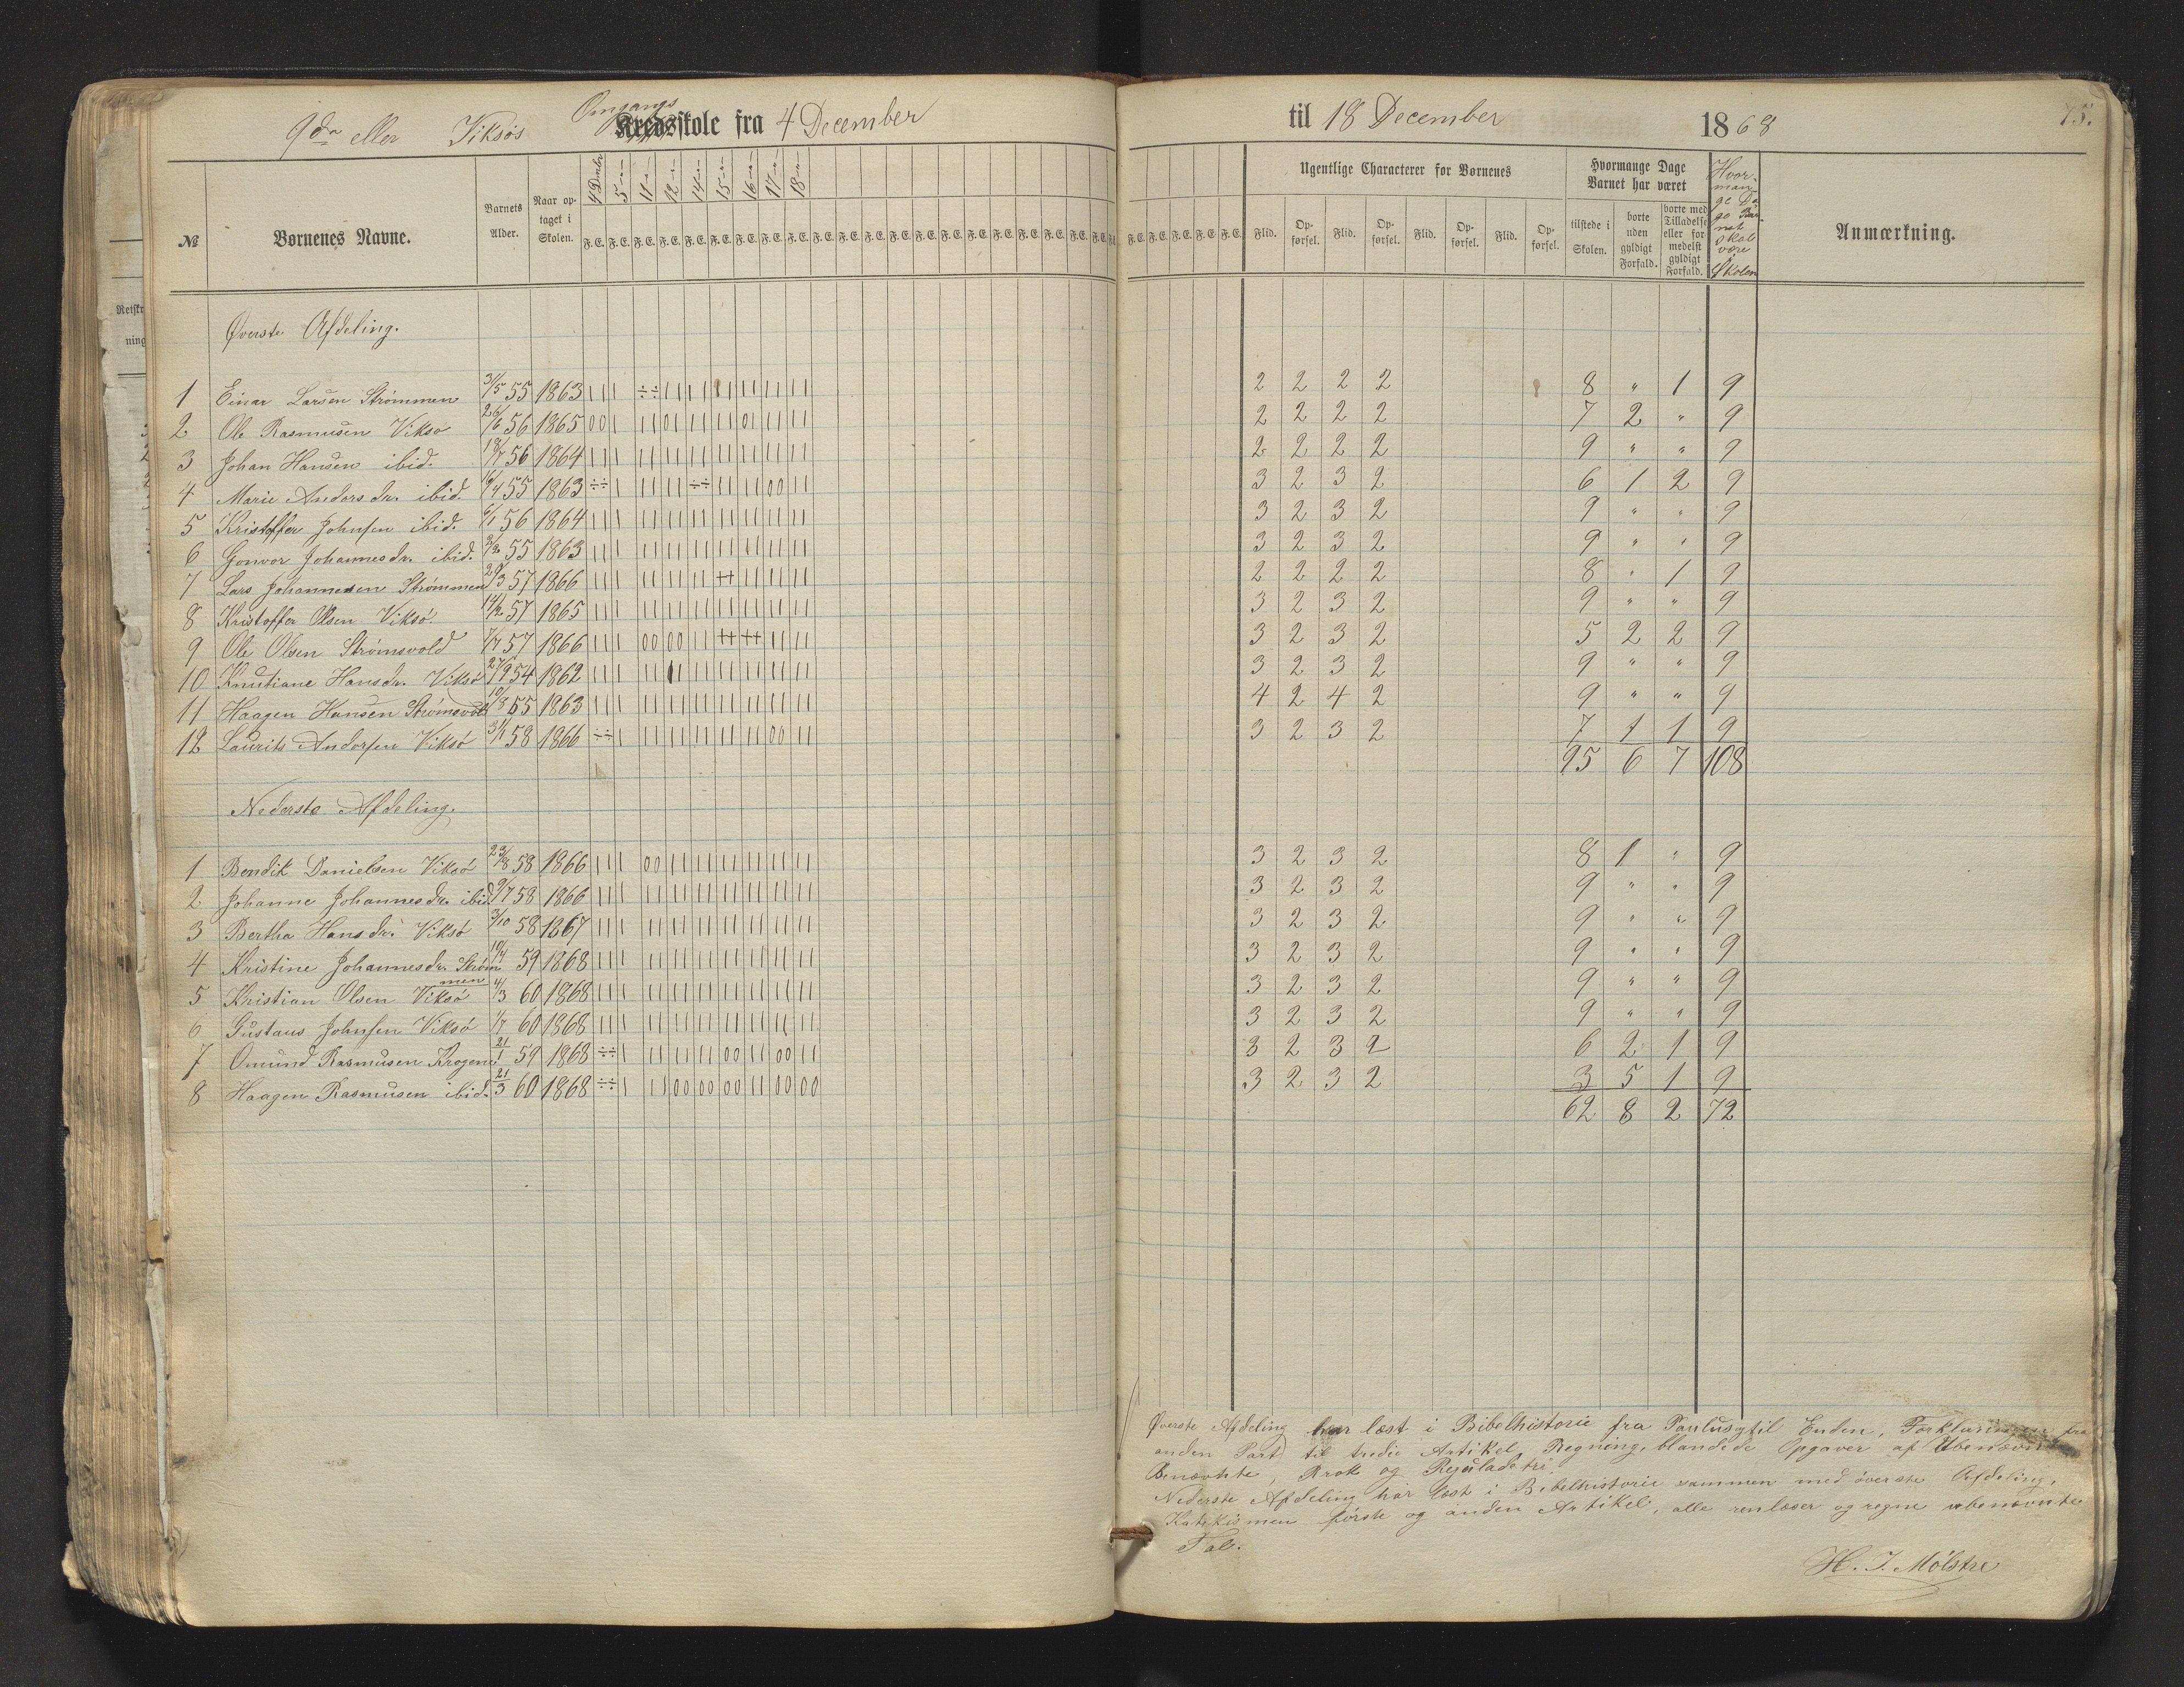 9de eller Viksøs Omgangs Kredsskole fra 4 December til 18 December 1868 75.
№ Børnenes Navne. Barnets Alder. Naar optaget i Skolen. 4 Decmbr 5 11 12 14 15 16 17 18 Ugentlige Characterer for Børnenes Hvormange Dage Barnet har været Hvormange Dage Barnet skal være i Skolen Anmærkning.
F. E. F. E. F. E. F. E. F. E. F. E. F. E. F. E. F. E. Flid. Opførsel. Flid. Opførsel. Flid. Opførsel. Flid. Opførsel. tilstede i Skolen. borte uden gyldigt Forfald. borte med Tilladelse eller formedelst gyldigt Forfald.
Øverste Afdeling.
1 Einar Larsen Strømmen 3/5 55 1863 2 2 2 2 8 " 1 9
2 Ole Rasmusen Viksø 26/6 56 1865 2 2 2 2 7 2 " 9
3 Johan Hansen ibid. 18/7 56 1864 2 2 2 2 9 " " 9
4 Marie Andorsdr. ibid. 16/4 55 1863 3 2 3 2 6 1 2 9
5 Kristoffer Johnsen ibid. 6/1 56 1864 3 2 3 2 9 " " 9
6 Gonvor Johannesdr. ibid. 55 1863 3 2 3 2 9 " " 9
7 Lars Johannesen Strømmen 29/3 57 1866 2 2 2 2 8 " 1 9
8 Kristoffer Olsen Viksø. 14/2 57 1865 3 2 3 2 9 " " 9
9 Ole Olsen Strømsvold 7/7 57 1866 3 2 3 2 5 2 2 9
10 Knutiane Hansdr. Viksø 27/9 54 1862 3 2 3 2 9 " " 9
11 Haagen Hansen Strømsvold 10/8 55 1863 4 2 4 2 9 " " 9
12 Laurits Andorsen Viksø 31/1 58 1866 3 2 3 2 7 1 1 9
95 6 7 108
Nederste Afdeling.
1 Bendik Danielsen Viksø 23/8 58 1866 3 2 3 2 8 1 " 9
2 Johanne Johannesdr. ibid. 9/7 58 1866 3 2 3 2 9 " " 9
3 Bertha Hansdr. Viksø 3/10 58 1867 3 2 3 2 9 " " 9
4 Kristine Johannesdr. Strømmen 10/4 59 1868 3 2 3 2 9 " " 9
5 Kristian Olsen Viksø 4/3 60 1868 3 2 3 2 9 " " 9
6 Gustaus Johnsen Viksø 1/7 60 1868 3 2 3 2 9 " " 9
7 Omund Rasmusen Krogen 21/1 59 1868 3 2 3 2 6 2 1 9
8 Haagen Rasmusen ibid. 21/3 60 1868 3 2 3 2 3 5 1 9
62 8 2 72
Øverste Afdeling har læst i Bibelhistorie fra Paulus til Enden, Forklaringen fra
anden Part til tredie Artikel, Regning, blandede Opgaver af Ubenævnte
Benævnte, Brøk og Reguladetri.
Nederste Afdeling har læst i Bibelhistorie sammen med øverste Afdeling,
Katekismen første og anden Artikel, alle renlæser og regne ubenævnte
Tal.
H. J. Mølstre